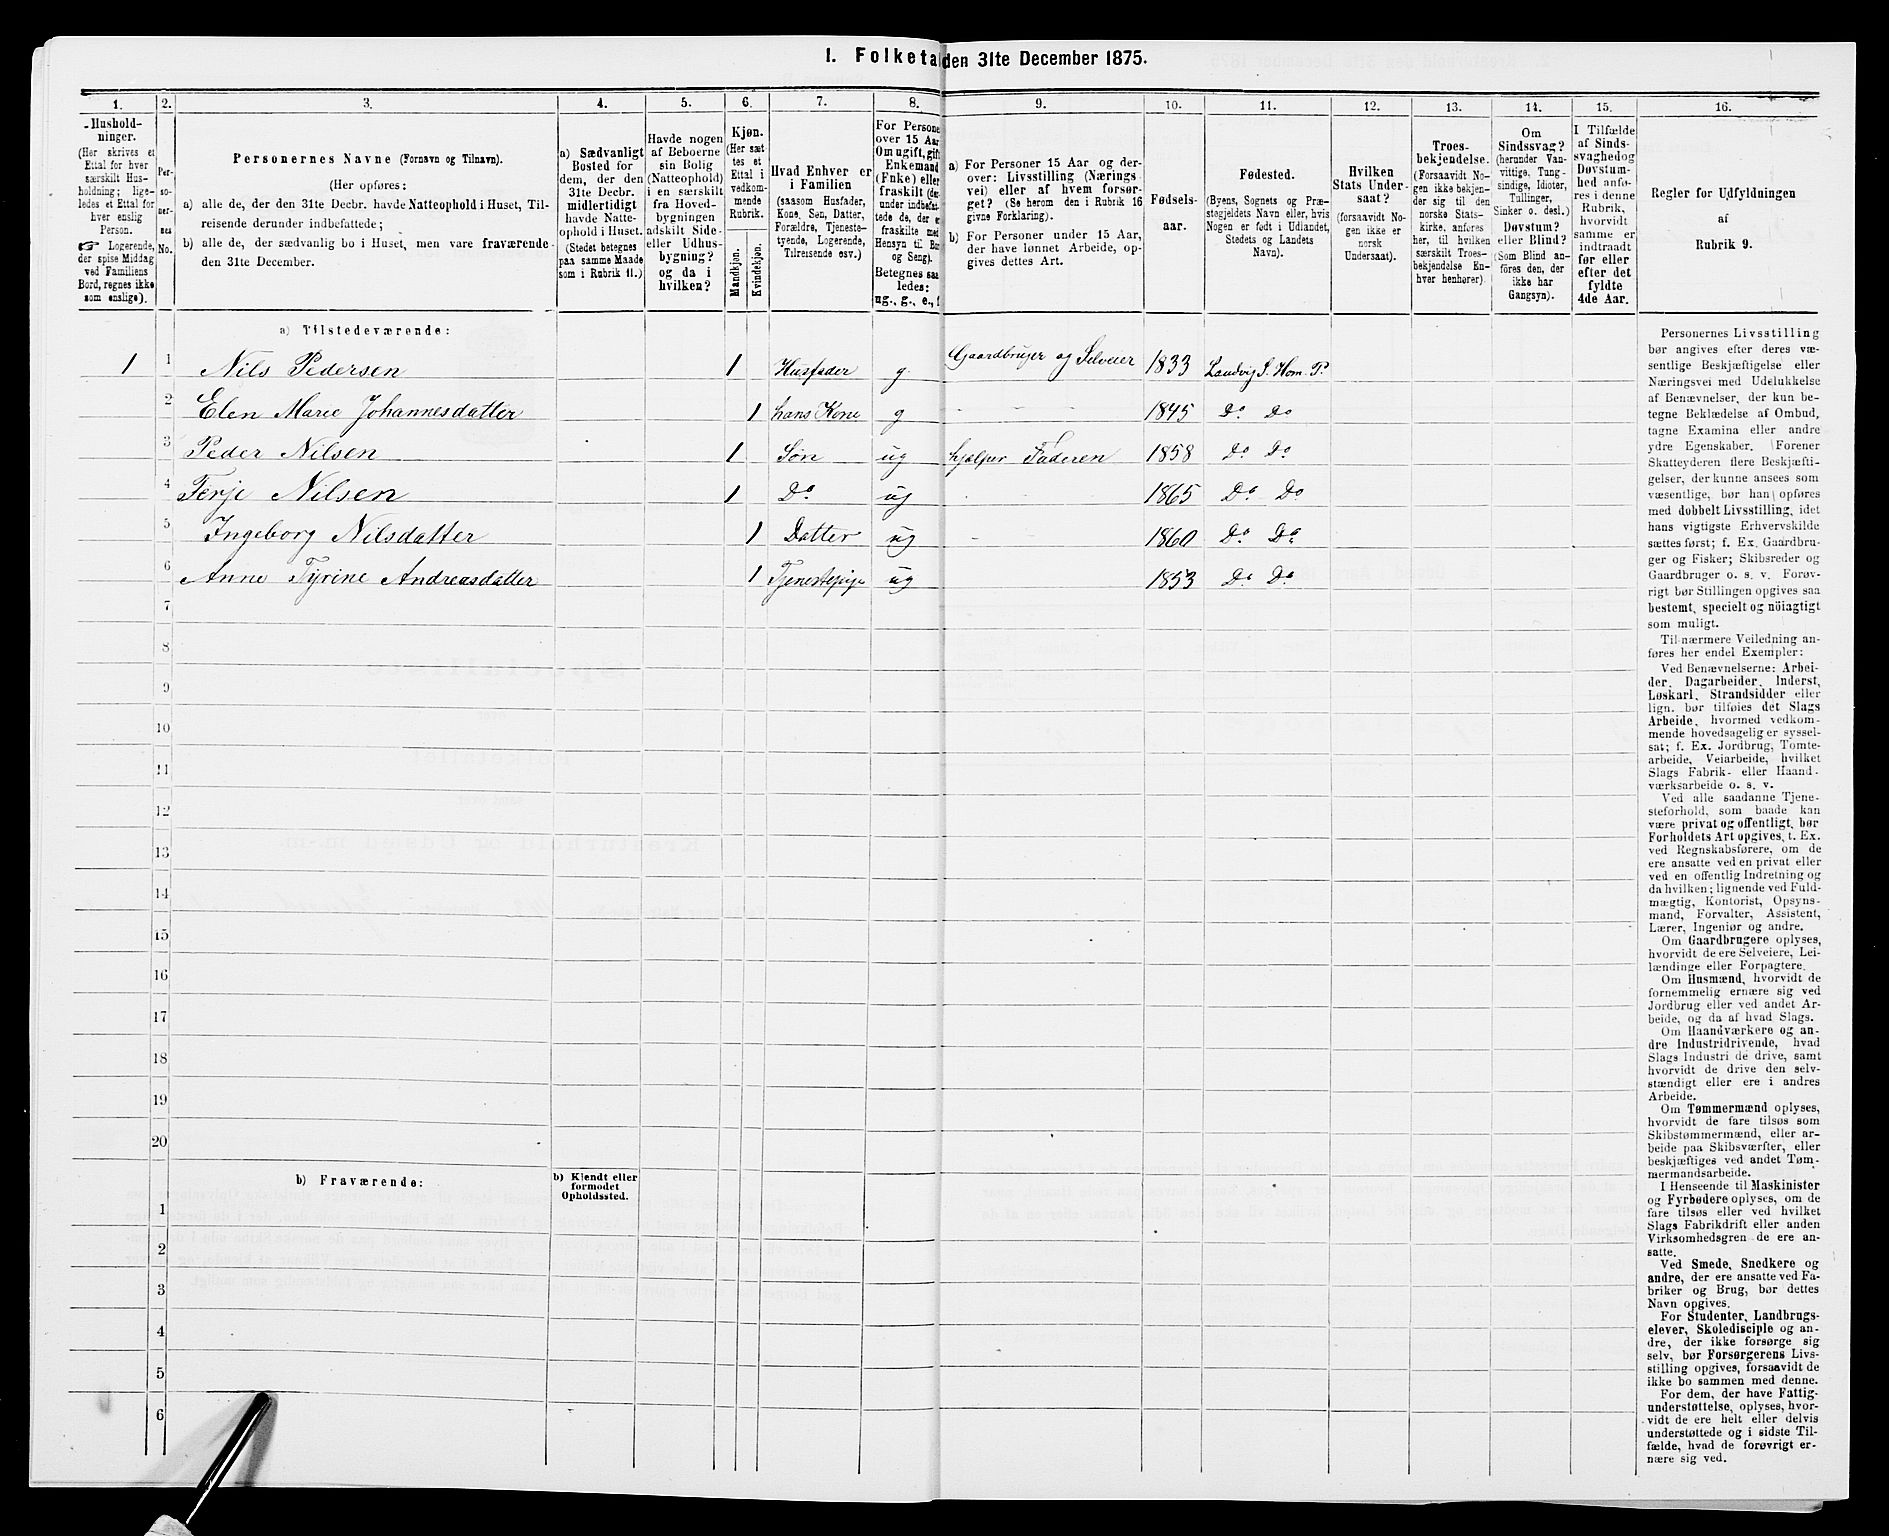 I. Folketal den 31te December 1875.
1. 2. 3. 4. 5. 6. 7. 8. 9. 10. 11. 12. 13. 14. 15. 16.
Husholdninger.
(Her skrives et
Ettal for hver
særskilt Husholdning;
ligeledes et Ettal for
hver enslig
Person.
☞ Logerende,
der spise Middag
ved Familiens
Bord, regnes ikke
som enslige).
Personernes No.
Personernes Navne (Fornavn og Tilnavn).
(Her opføres:
a) alle de, der den 31te Decbr. havde Natteophold i Huset, Tilreisende derunder indbefattede;
b) alle de, der sædvanlig bo i Huset, men vare fraværende den 31te December.
a) Sædvanligt
Bosted for
dem, der den
31te Decbr.
midlertidigt
havde Natteophold i Huset.
(Stedet betegnes
paa samme Maade
som i Rubrik 11.)
Havde nogen
af Beboerne
sin Bolig
(Natteophold)
i en særskilt
fra Hovedbygningen
adskilt Side-
eller Udhusbygning?
og da i
hvilken?
Kjøn.
(Her sættes et
Ettal i
vedkommende
Rubrik.
Mandkjøn.
Kvindekjøn.
Hvad Enhver er
i Familien
(saasom Husfader,
Kone, Søn, Datter,
Forældre, Tjenestetyende, Logerende,
Tilreisende osv.)
For Persone
over 15 Aar
Om ugift, gift
Enkemand
(Enke) eller
fraskilt (derunder indbefattede de, der e
fraskilte med
Hensyn til Bor
og Seng).
Betegnes saaledes:
ug., g., e., f
a) For Personer 15 Aar og derover: Livsstilling (Næringsvei) eller af hvem forsørget? (Se herom den i Rubrik 16
givne Forklaring).
b) For Personer under 15 Aar,
der have lønnet Arbeide, opgives dettes Art.
Fødselsaar.
Fødested.
(Byens, Sognets og Præstegjeldets Navn eller, hvis
Nogen er født i Udlandet,
Stedets og Landets
Navn).
Hvilken
Stats Undersaat?
(forsaavidt Nogen ikke er
norsk
Undersaat).
Troesbekjendelse.
(Forsaavidt Nogen ikke bekjender sig til den
norske Statskirke, anføres
her, til hvilken
særskilt Troesbekjendelse Enhver henhører).
Om
Sindssvag?
(herunder Vanvittige, Tungsindige, Idioter,
Tullinger,
Sinker o. desl.)
Døvstum?
eller Blind?
(Som Blind anføres den, der
ikke har
Gangsyn).
I Tilfælde
af Sindssvaghed og
Døvstumhed anføres i denne
Rubrik,
hvorvidt
samme er
indtraadt
før eller
efter det
fyldte
4de Aar.
Regler for Udfyldningen
af
Rubrik 9.
a) Tilstedeværende:
1 1 Nils Pedersen 1 Husfader g Gaardbruger og Selveier 1833 Landvig S. Hom. P.
2 Elen Marie Johannesdatter 1 hans Kone g - - 1845 Do Do
3 Peder Nilsen 1 Søn ug hjælper Faderen 1858 Do Do
4 Terje Nilsen 1 Do ug - - 1865 Do Do
5 Ingeborg Nilsdatter 1 Datter ug - - 1860 Do Do
6 Anne Tyrine Andreasdatter 1 Tjenestepige ug 1853 Do Do
7
8
9
10
11
12
13
14
15
16
17
18
19
20
b) Fraværende:
b) Kjendt eller
formodet
Opholdssted.
1
2
3
4
5
6
Personernes Livsstilling
bør angives efter deres væsentlige Beskjæftigelse eller
Næringsvei med Udelukkelse
af Benævnelser, der kun betegne Beklædelse af Ombud,
tagne Examina eller andre
ydre Egenskaber. Forener
Skatteyderen flere Beskjæftigelser, der kunne ansees som
væsentlige, bør han opføres
med dobbelt Livsstilling, idet
hans vigtigste Erhvervskilde
sættes først; f. Ex. Gaardbruger og Fisker; Skibsreder og
Gaardbruger o. s. v. Forøvrigt bør Stillingen opgives saa
bestemt, specielt og nöiagtigt
som muligt.
Til nærmere Veiledning anføres her endel Exempler:
Ved Benævnelserne: Arbeider, Dagarbeider, Inderst,
Løskarl, Strandsidder eller
lign. bør tilføies det Slags
Arbeide, hvormed vedkommende hovedsagelig er sysselsat; f. Ex. Jordbrug, Tomtearbeide, Veiarbeide, hvilket
Slags Fabrik- eller Haandværksarbeide o. s. v.
Ved alle saadanne Tjenesteforhold, som baade kan
være privat og offentligt, bør
Forholdets Art opgives, t. Ex.
ved Regnskabsførere, om de
ere ansatte ved en privat eller
ved en offentlig Indretning og
da hvilken; lignende ved Fuldmægtig, Kontorist, Opsynsmand, Forvalter, Assistent,
Lærer, Ingeniør og andre.
Om Gaardbrugere oplyses,
hvorvidt de ere Selveiere, Leilændinge eller Forpagtere.
Om Husmænd, hvorvidt de
fornemmelig ernære sig ved
Jordbrug eller ved andet Arbeide, og da af hvad Slags.
Om Haandværkere og andre Industridrivende, hvad
Slags Industri de drive, samt
hvorvidt de drive den selvstændigt eller ere i andres
Arbeide.
Om Tømmermænd oplyses,
hvorvidt de fare tilsøs som
Skibstømmermænd, eller arbeide paa Skibsværfter, eller
beskjæftiges ved andet Tømmermandsarbeide.
I Henseende til Maskinister
og Fyrbødere oplyses, om de
fare tilsøs eller ved hvilket
Slags Fabrikdrift eller anden
Virksomhedsgren de ere ansatte.
Ved Smede, Snedkere og
andre, der ere ansatte ved Fabriker og Brug, bør dettes
Navn opgives.
For Studenter, Landbrugselever, Skoledisciple og andre, der ikke forsørge sig
selv, bør Forsørgerens Livsstilling opgives, forsaavidt de
ikke bo sammen med denne.
For dem, der have Fattigunderstøttelse, oplyses, hvorvidt de ere helt eller delvis
understøttede og i sidste Tilfælde, hvad de forøvrigt ernære sig ved.